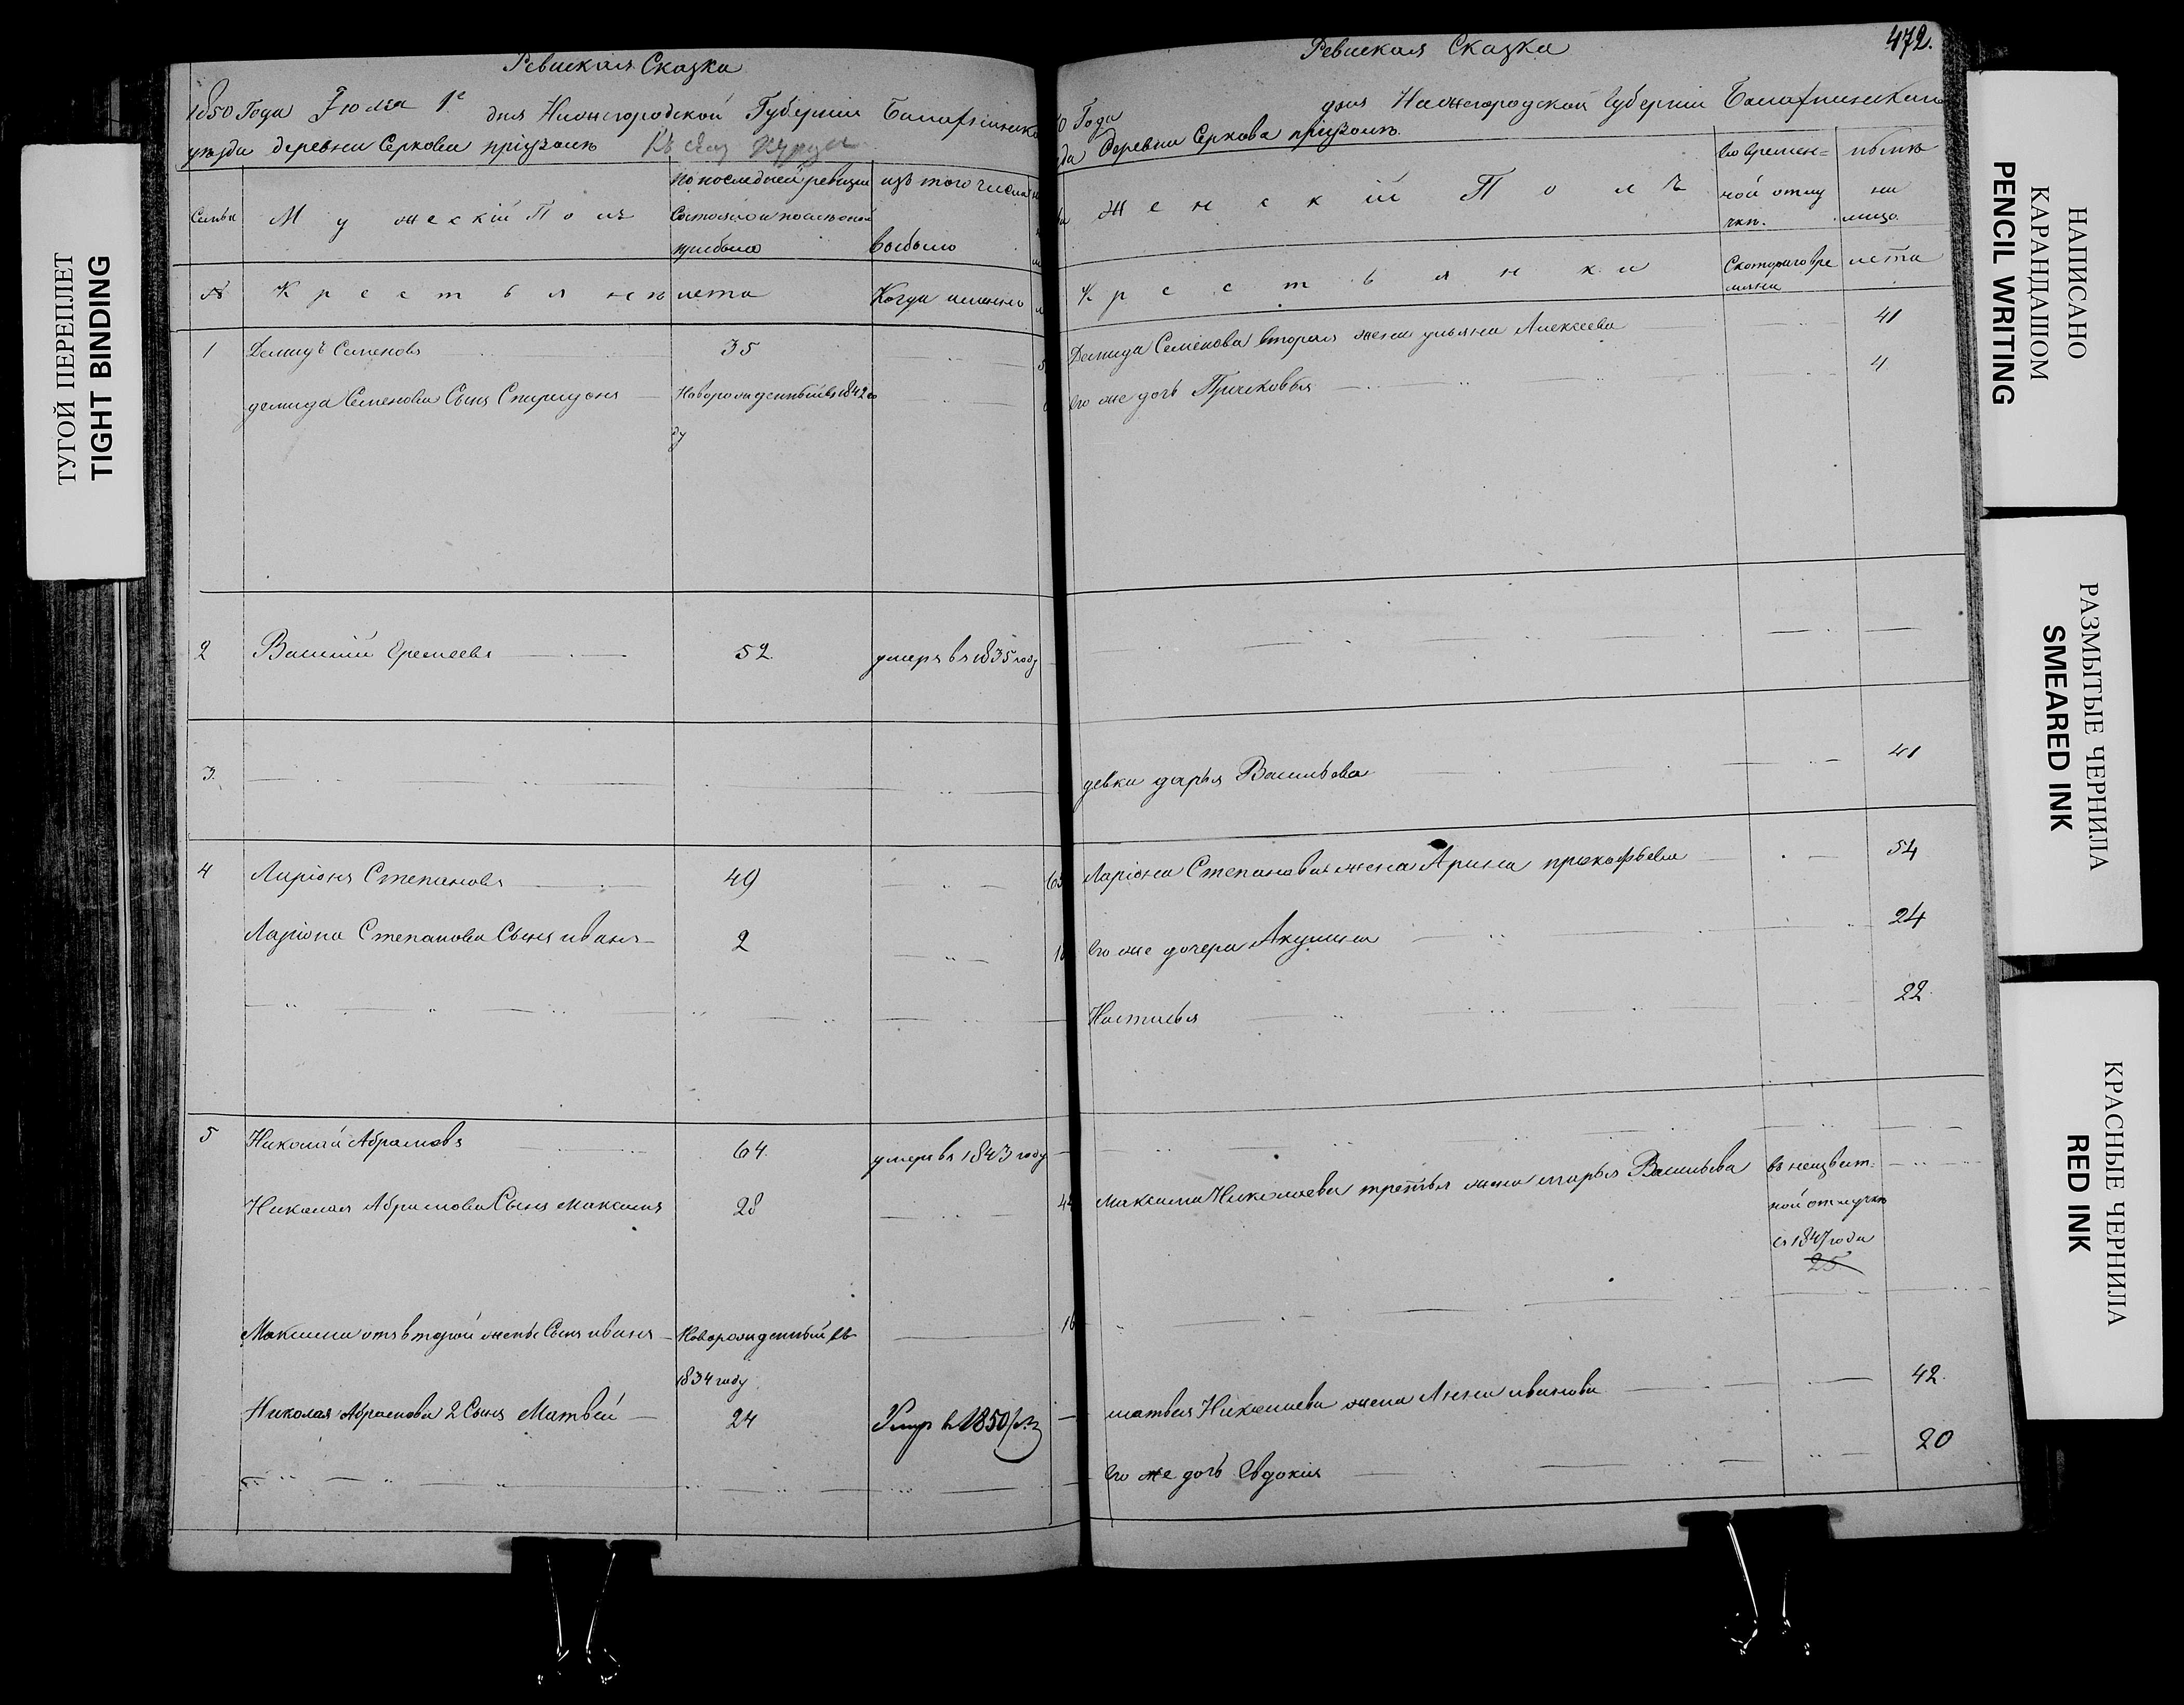 ТУГОЙ ПЕРЕПЛЕТ
TIGHT BINDING
Ревиская Сказка
1850 Года Июля 1е дня Нижегородской Губернии
уезда деревни Серкова
Семьи
Мужеский Полъ
По последней ревизии
состояло и после оной
прибыло
изъ того числа
выбыло
№
Крестьяне
лета
Когда именно
1 Демидъ Семеновъ 35
демида Семенова Сынъ Спиридонъ Новорожденный въ 1842 го
ду
2 Василий Еремеевъ 52 умеръ въ 1835 году
3.
4 Ларіонъ Степановъ 49
Ларіона Степанова Сынъ иванъ 2
5 Николай Абрамовъ 64 умеръ въ 1843 году
Николая Абрамова Сынъ максимъ 28
Максима отъ второй жены Сынъ иванъ Новорожденный въ
1834 году
Николая Абрамова 2 Сынъ Матвей 24 Умеръ въ 1850
Ревиская Сказка
472.
Года дня Нижегородской Губернии
да Деревни Серкова
Женский Полъ
Во времен=
ной отлу
чки.
на
лицо
Крестьянки
Скотораго вре
мяни
лета
Демида Семенова вторая жена ульяна Алексеева 41
Его же дочь Прасковья 4
девка дарья Васильева 41
Ларіона Степанова жена Арина прокофьева 54
Его же дочери Акулина 24
Настасья 22
16
максима Николаева третья жена марья Васильева
ной отлучке
съ 1847 года
25
16
матвея Николаева жена Анна иванова 42
Его же дочь Евдокия 20
НАПИСАНО
КАРАНДАШОМ
PENCIL WRITING
РАЗМЫТЫЕ ЧЕРНИЛА
SMEARED INK
КРАСНЫЕ ЧЕРНИЛА
RED INK